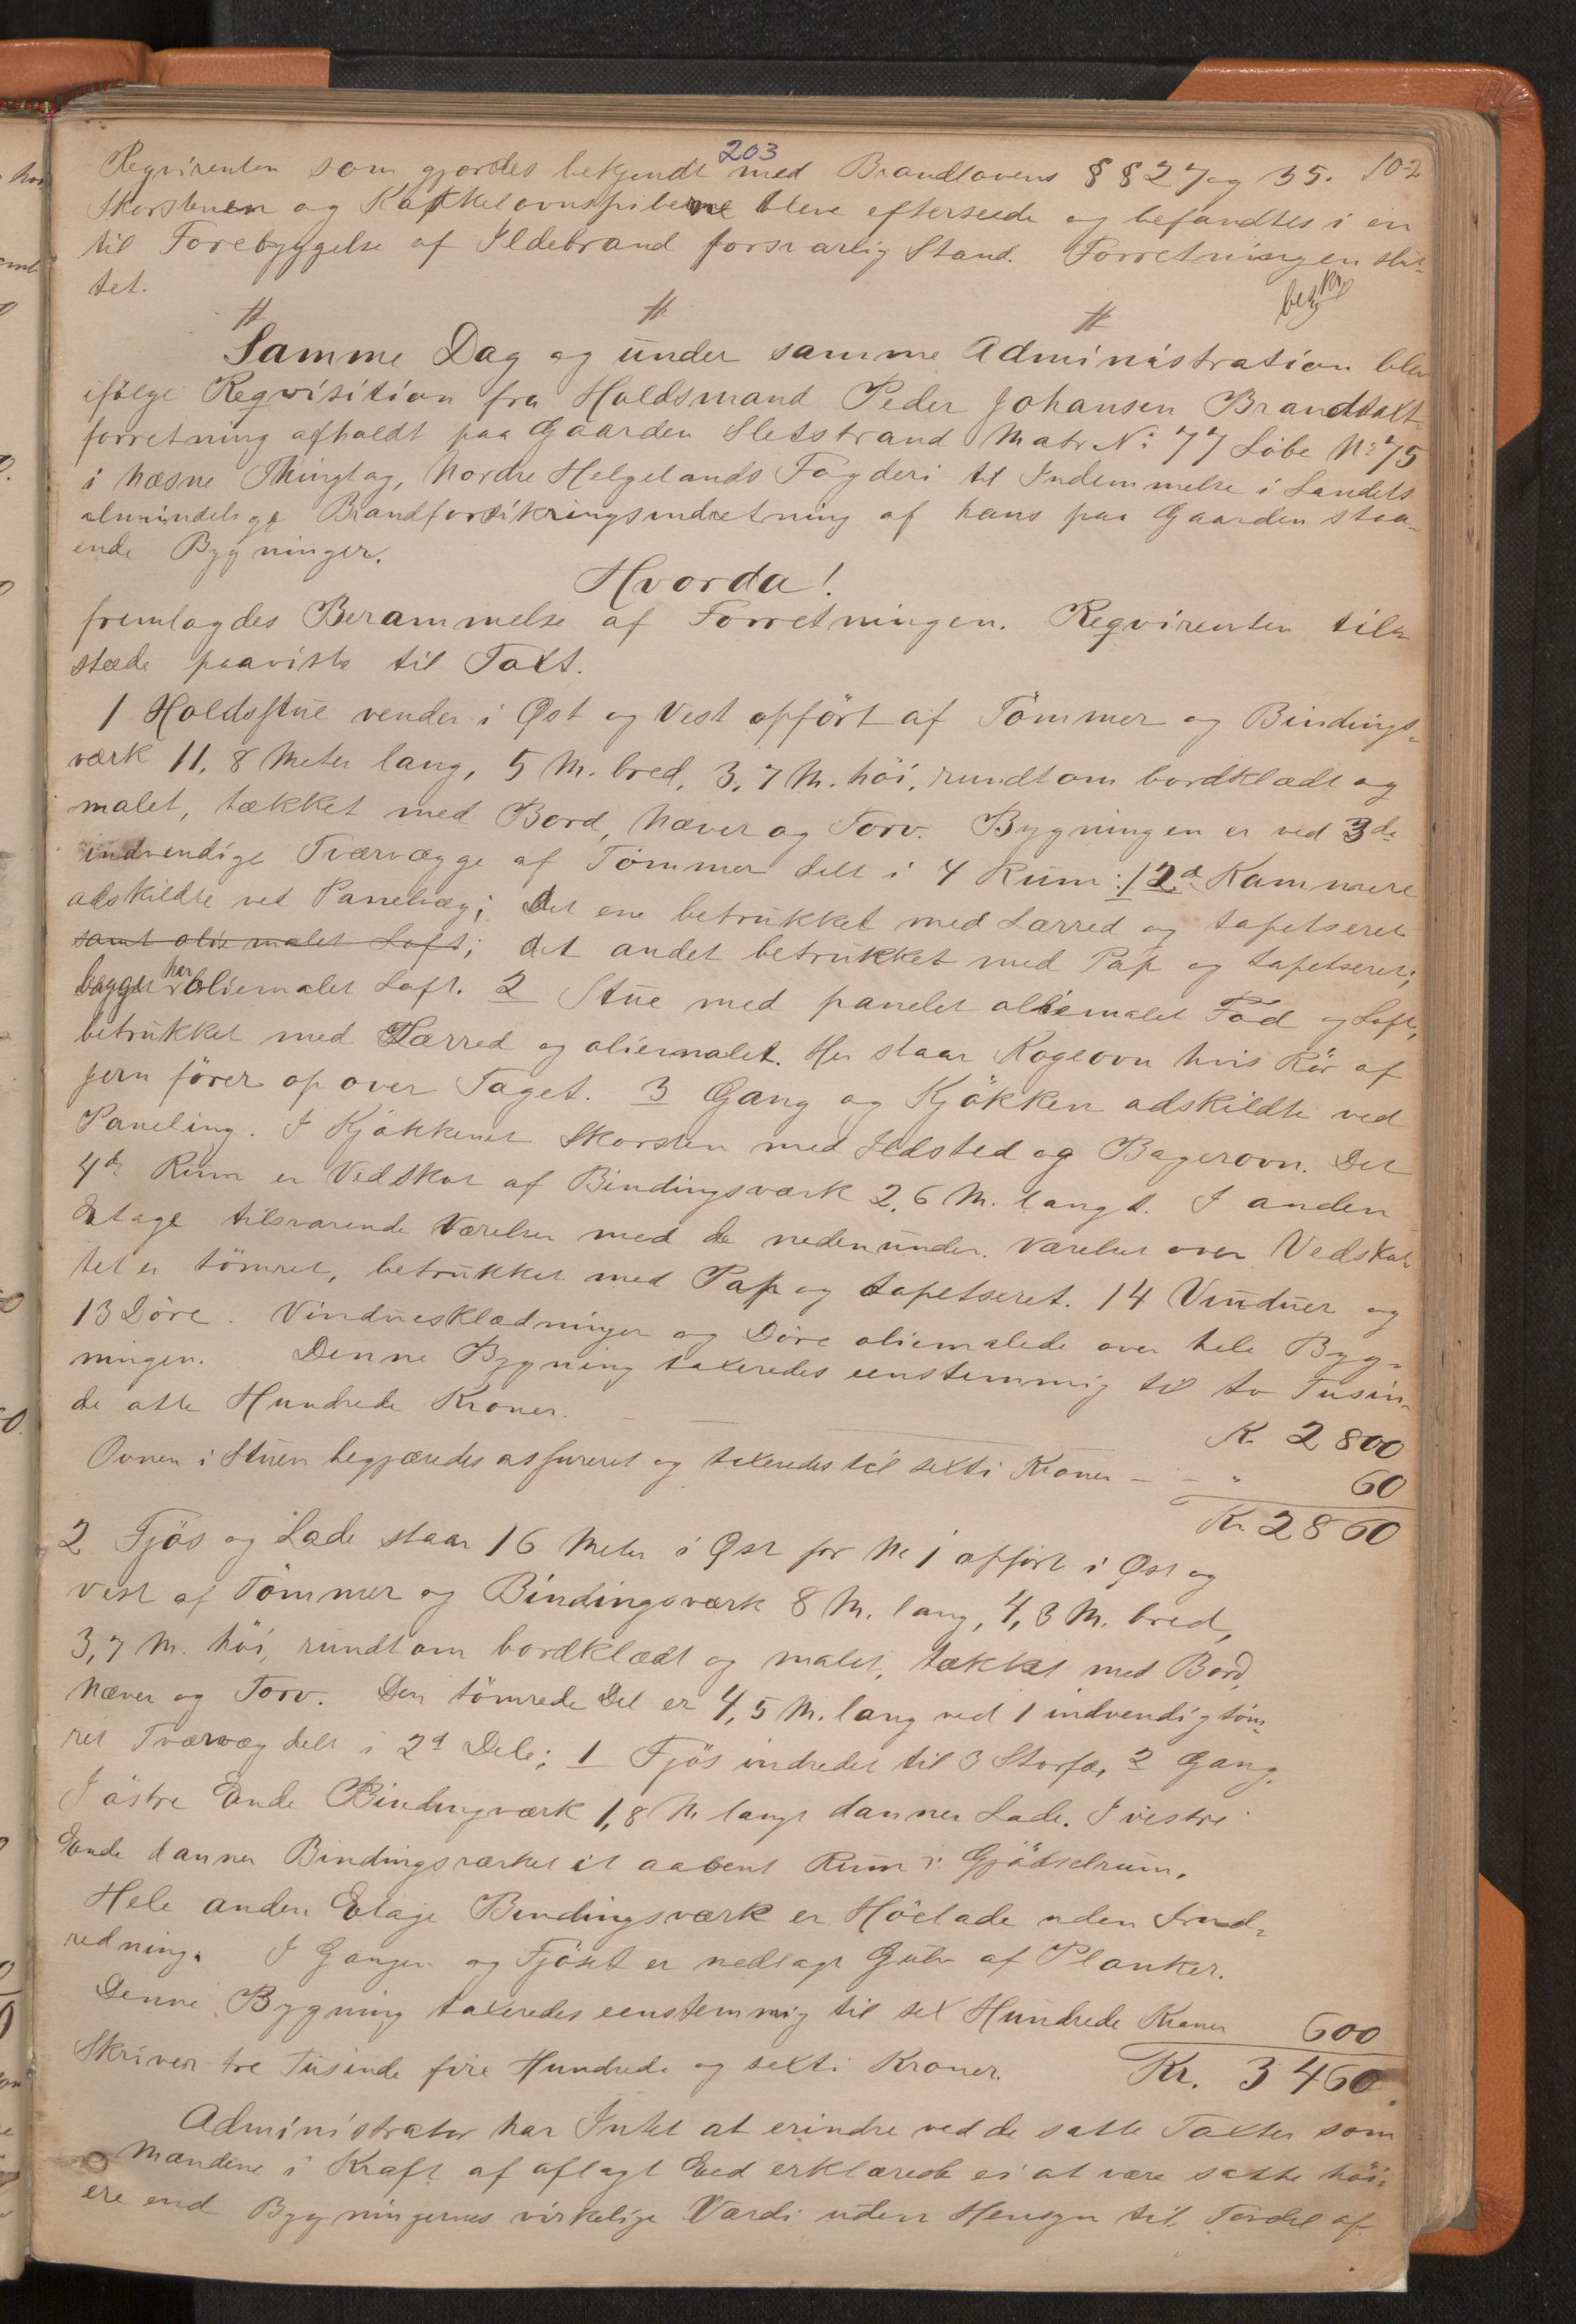 203
102
Reqvirenten som gjordes bekjendt med Brandlovens §§ 27 og 35.
Skorstenen og Kakkelovnspiberne bleve efterseede og befandtes i en
til Forebyggelse af Ildebrand forsvarlig Stand. Forretningen slut-
tet.
Samme Dag og under samme Administration blev
ifølge Reqvisition fra Holdsmand Peder Johansen Brandtaxt-
forretning afholdt paa Gaarden Sletstrand Matr No: 77 Löbe No 75
i Næsne Thinglag, Nordre Helgelands Fogderi til Indemmelse i Landets
almindelige Brandforsikringsindretning af hans paa Gaarden staa-
ende Bygninger.
Hvorda!
fremlagdes Berammelse af Forretningen. Reqvirenten til-
stæde paaviste til Taxt.
1 Holdsstue vender i Øst og Vest opfört af Tömmer og Bindings-
værk 11,8 Meter lang, 5 M. bred, 3,7 M. höi, rundtom bordklædt og
malet, tækket med Bord, Næver og Torv. Bygningen er ved 3de
indvendige Tværvægge af Tömmer delt i 4 Rum: 1 2de Kammere
adskildte ved Panelvæg; Det ene betrukket med Lærred og tapetseret
samt olie malet Loft; det andet betrukket med Pap og tapetseret;
begge har oliemalet Loft. 2 Stue med panelet oliemalet Fod og Loft,
betrukket med Lærred og oliemalet. Her staar Kogeovn hvis Rör af
Jern förer op over Taget. 3 Gang og Kjökken adskildte ved
Paneling. I Kjökkenet Skorsten med Ildsted og Bagerovn. Det
4de Rum er Vedskot af Bindingsværk 2,6 M. langt. I anden
Etage tilsvarende Værelser med de nedenunder. Værelset over Vedsko-
tet er tömret, betrukket med Pap og tapetseret. 14 Vinduer og
13 Döre. Vinduesklædninger og Döre oliemalede over hele Byg-
ningen. Denne Bygning taxeredes eenstemmig til to Tusin-
de otte Hundrede Kroner. Kr. 2800
Ovnen i Stuen begjæredes assureret og taxeredes til sexti Kroner - - " 60
Kr. 2860
2 Fjös og Lade staar 16 Meter i Øst for No 1 opfört i Øst og
Vest af Tömmer og Bindingsværk 8 M. lang, 4,3 M. bred,
3,7 M. höi, rundtom bordklædt og malet, tækket med Bord,
Næver og Torv. Den tömrede Del er 4,5 M. lang ved 1 indvendig töm-
ret Tværvæg delt i 2de Dele: 1 Fjös indredet til 3 Storfæ, 2 Gang.
I östre Ende Bindingværk 1,8 M langt danner Lade. I vestre
Ende danner Bindingsværket et aabent Rum: Gjödselrum.
Hele anden Etage Bindingsværk er Hölade uden Ind-
redning. I Gangen og Fjöset er nedlagt Gulv af Planker.
Denne Bygning taxeredes eenstemmig til sex Hundrede Kroner 600
Skriver tre Tusinde fire Hundrede og sexti Kroner. Kr. 3460
Administrator har Intet at erindre ved de satte Taxter som
Mændene i Kraft af aflagt Eed erklærede ei at være satte höi-
ere end Bygningernes virkelige Værdi uden Hensyn til Fordel af